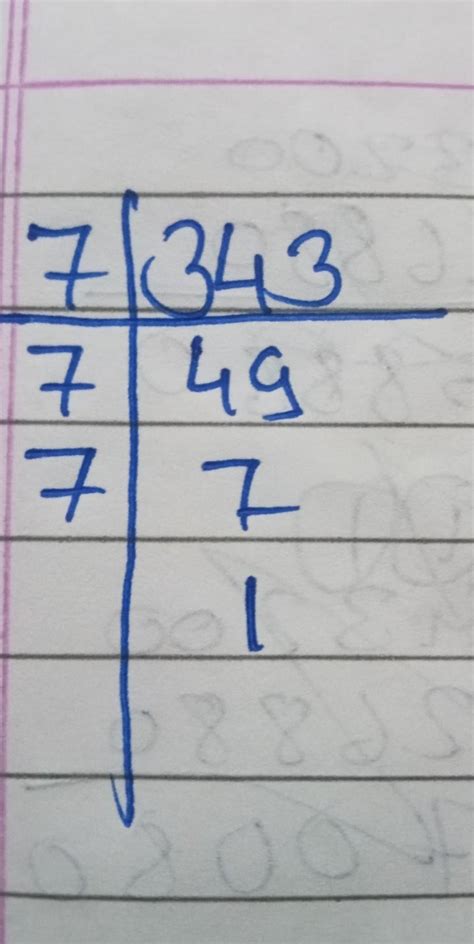 7 343
7 49
7 7
1